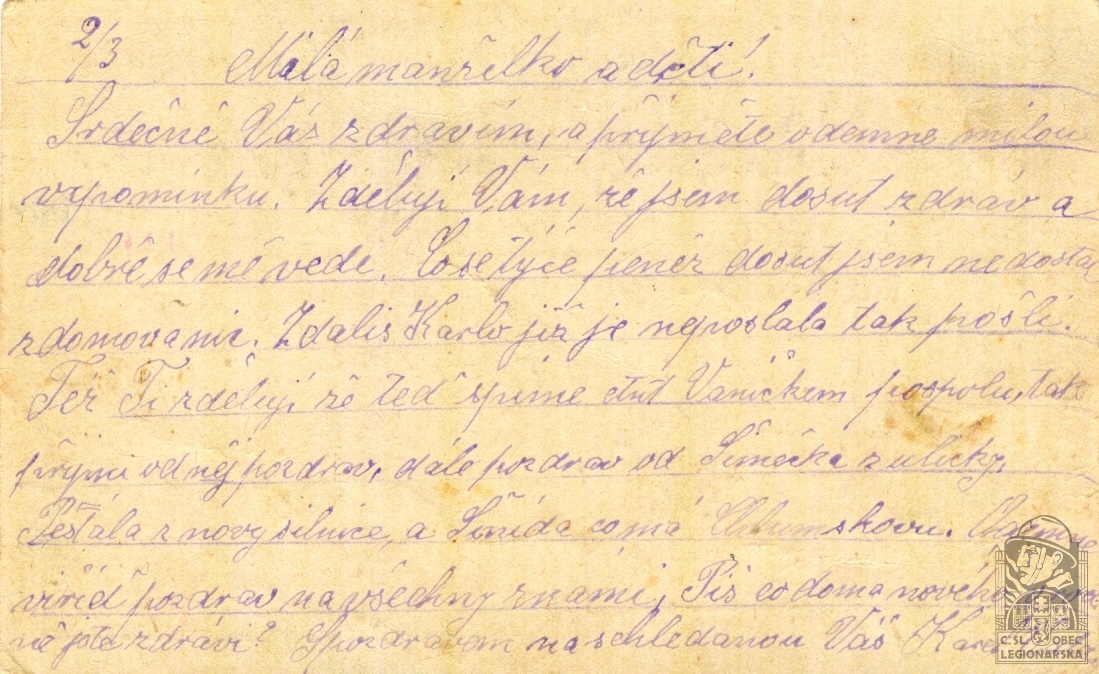 2/3
Milá manželko a dětí!
Srdečně Vás zdravím, a příjměte odemne milou
vzpomínku. Zděluji Vám, že jsem dosut zdráv a
dobře se mě vede. Co se týče peněz dosut jsem nedostal
zdomova nic. Zdalis Karlo již je neposlala tak pošli.
Též Ti zděluji že teď spíme Vaníčkem pospolu, tak
příjmi od něj pozdrav, dále pozdrav od Šimečka z uličky
Pešťála z novy silnice, a co má
viřiď pozdrav na všechny znami, Piš co doma nového
jste zdrávi? S pozdravem naschledanou Váš
ČSL. OBEC
LEGIONÁŘSKÁ